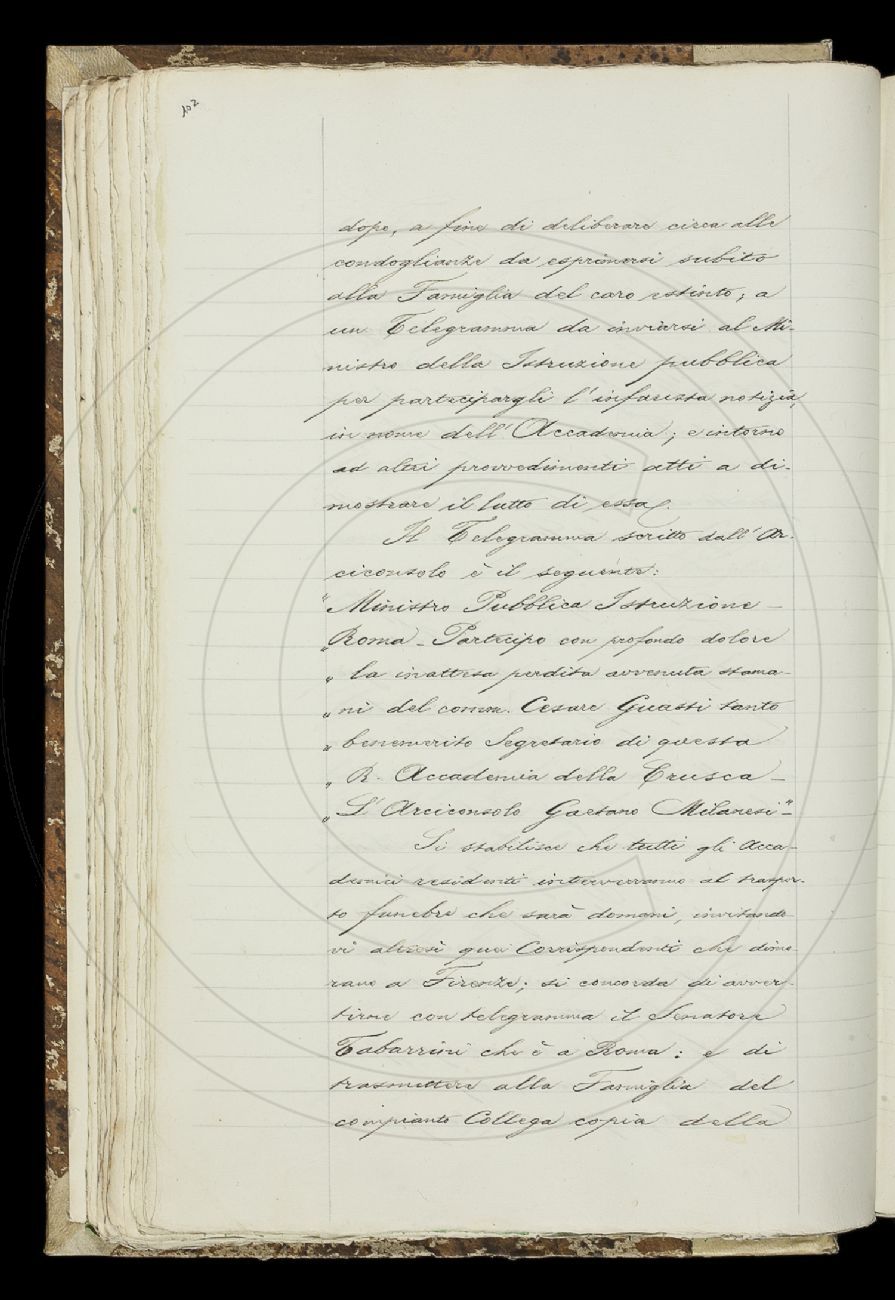 102
dopo, a fine di deliberare circa alle
condoglianze da esprimersi subito
alla Famiglia del caro estinto; a
un Telegramma da inviarsi al Mi-
nistro della Istruzione pubblica
per partecipargli l'infausta notizia,
in nome dell'Accademia; e intorno
ad altri provvedimenti atti a di-
mostrare il lutto di essa.
Il Telegramma scritto dall'Ar-
ciconsolo è il seguente:
"Ministro Pubblica Istruzione -
„Roma - Partecipo con profondo dolore
„la inattesa perdita avvenuta stama-
„ni del comm. Cesare Guasti tanto
„benemerito Segretario di questa
„R. Accademia della Crusca -
„L'Arciconsolo Gaetano Milanesi"-
Si stabilisce che tutti gli Acca-
demici residenti interverranno al traspor-
to funebre che sarà domani, invitando
vi altresì que' Corrispondenti che dimo-
rano a Firenze; si concorda di avver-
tirne con telegramma il Senatore
Tabarrini che è a Roma: e di
trasmettere alla Famiglia del
compianto Collega copia della